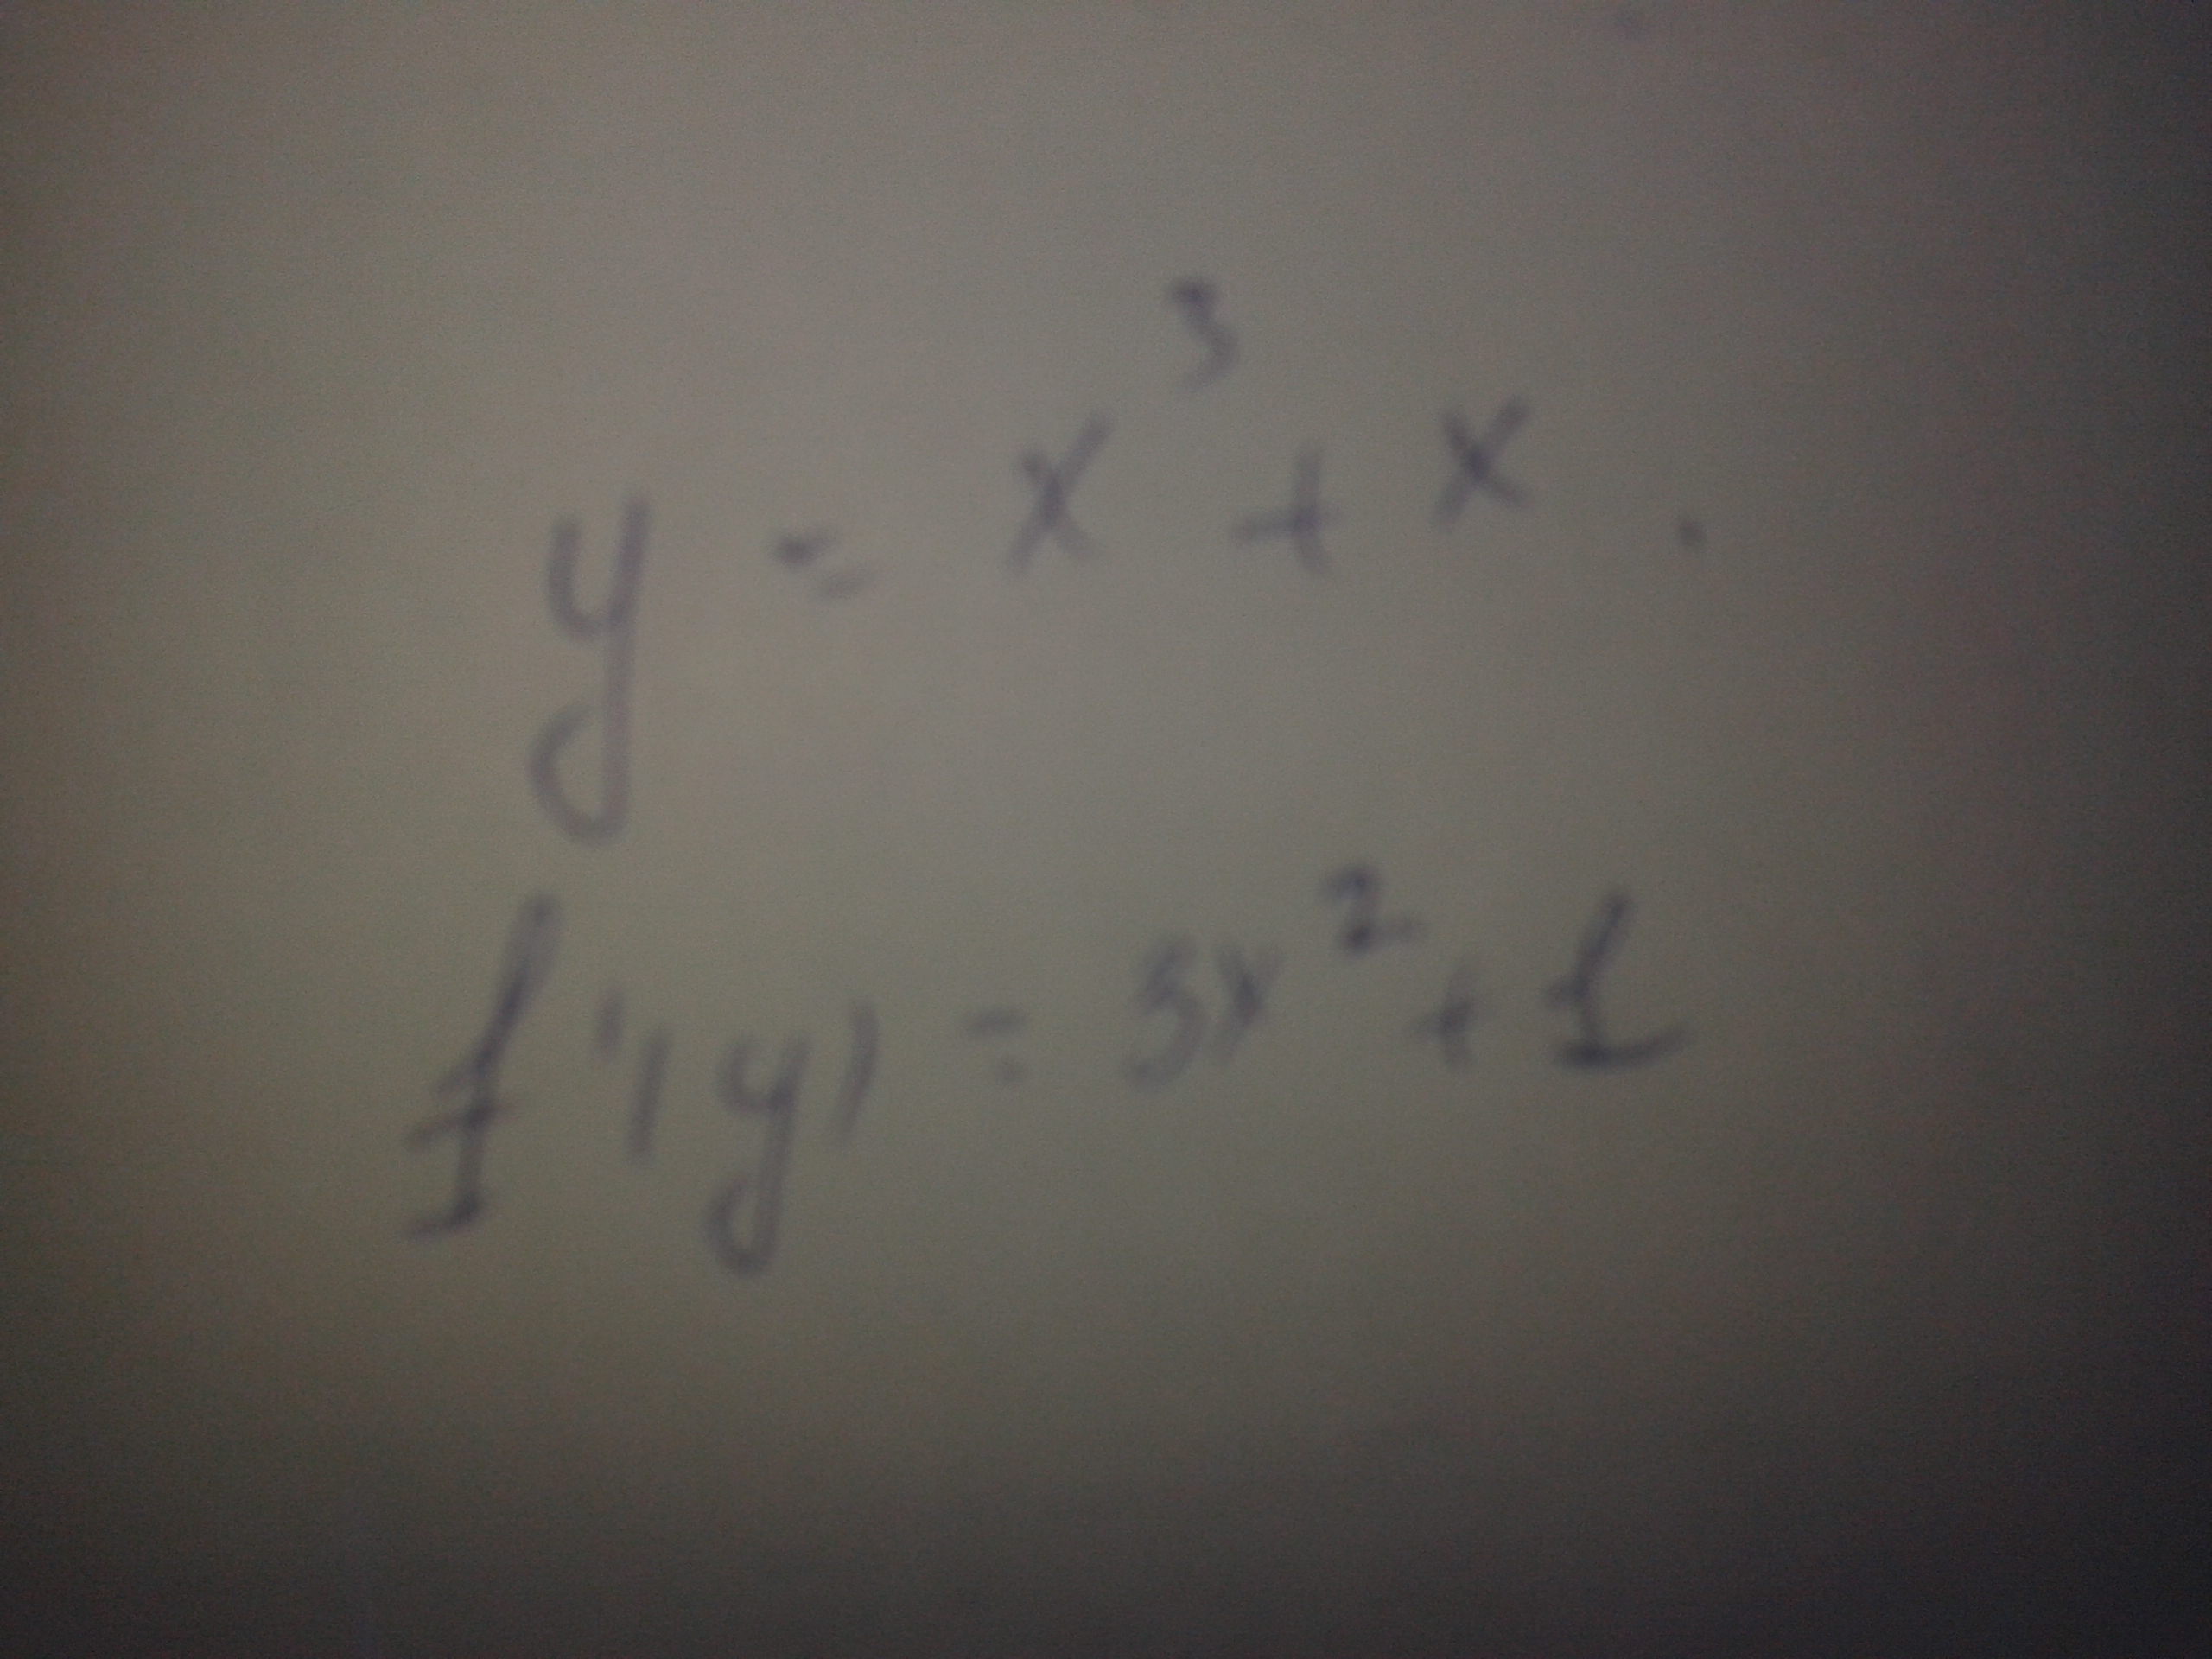 y = x³ + x .
f'(y) = 3x² + 1